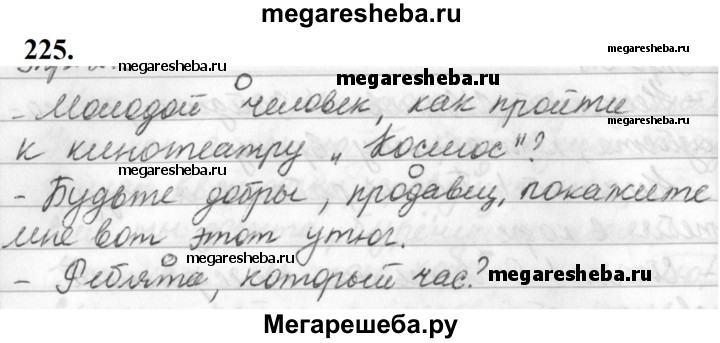 megaresheba.ru
225.
megaresheba.ru
megaresheba.ru
megaresheba.ru
- Молодой человек, как пройти
к кинотеатру „Космос"?
- Будьте добры, продавец, покажите
мне вот этот утюг.
megaresheba.ru
- Ребята, который час?
megaresheba.ru
Мегарешеба.ру